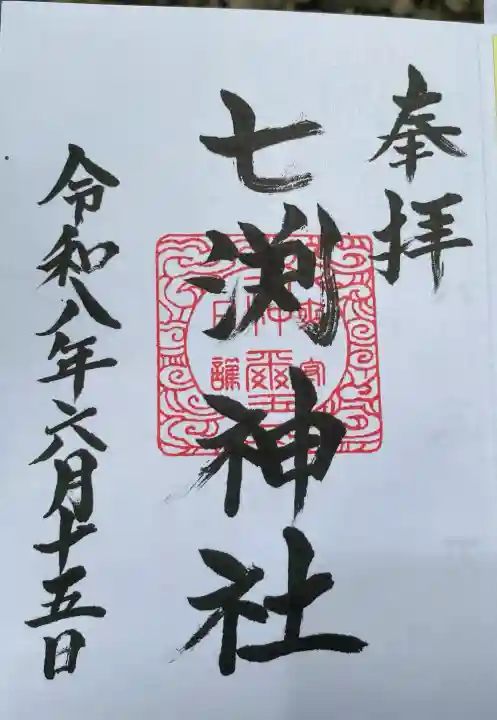 奉拝
七渕神社
令和八年六月十五日